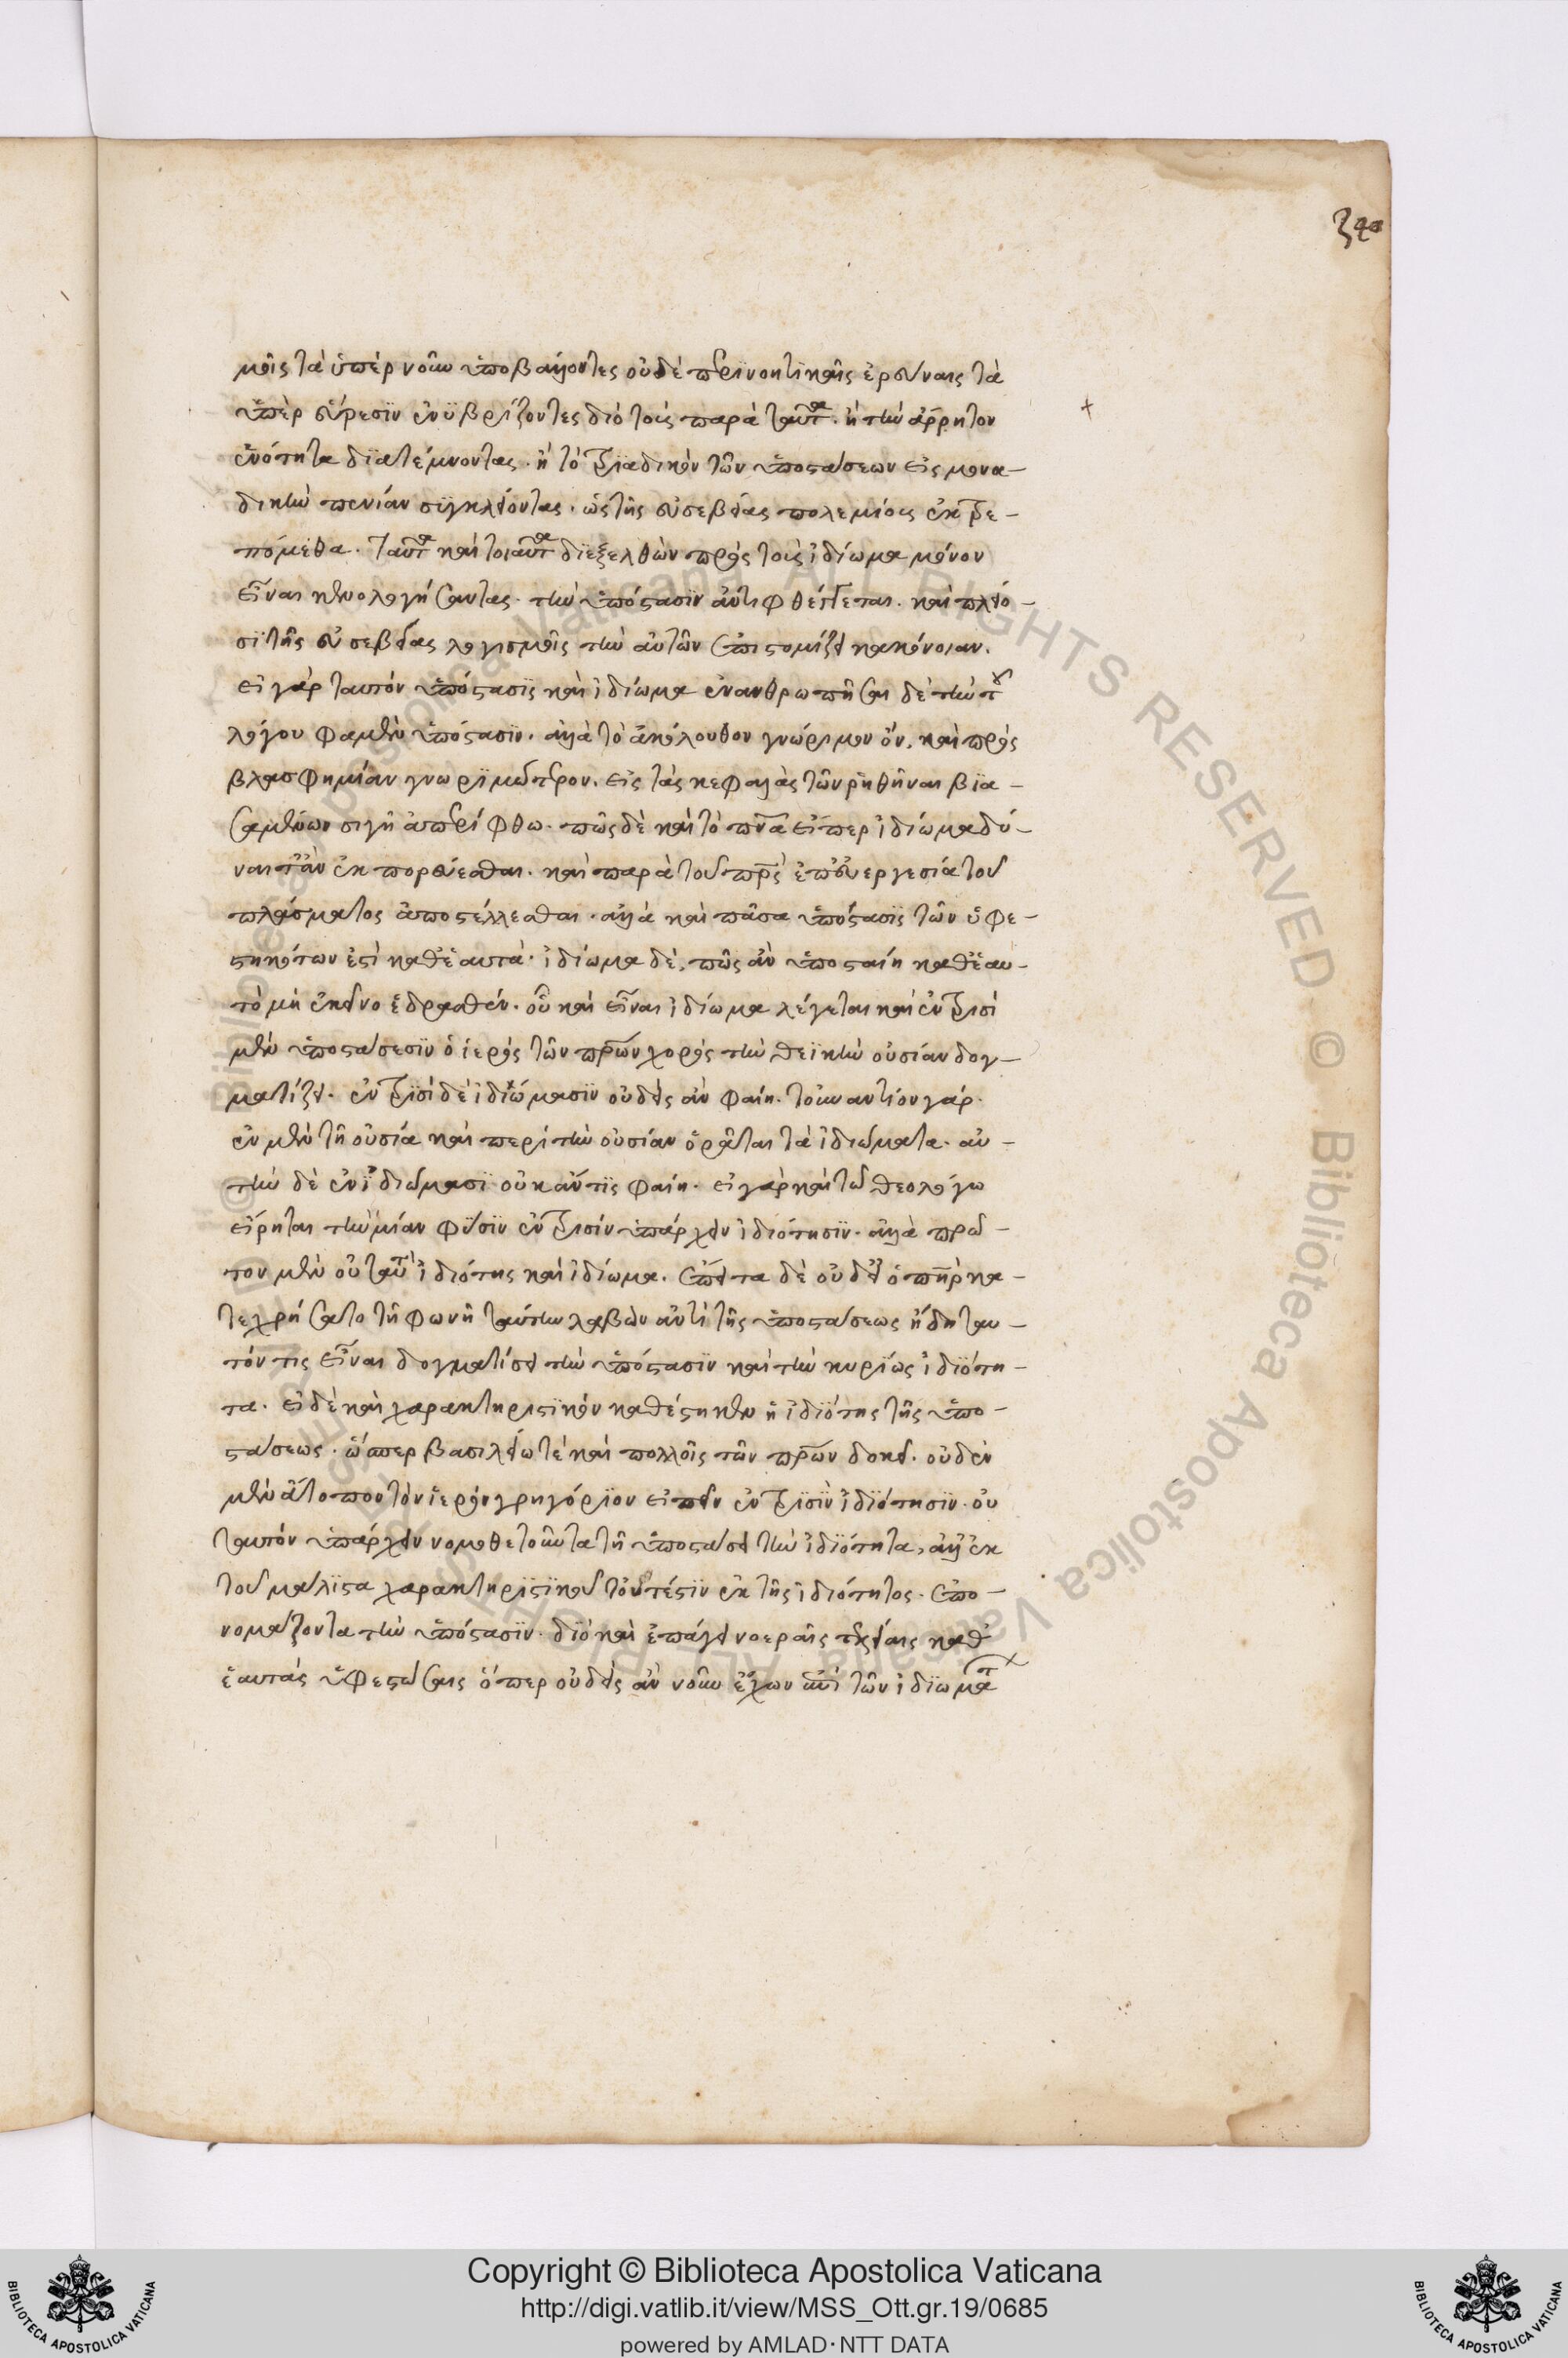 340
μοῖς τὰ ὑπὲρ νοῦν ὑποβάλλοντες οὐδὲ περινοητικαῖς ἐρεύναις τὰ
ὑπὲρ εὕρεσιν ἐνυβρίζοντες διὸ τοὺς παρὰ ταῦτα. ἢ τὴν ἄρρητον
ἑνότητα διατέμνοντας. ἢ τὸ τριαδικὸν τῶν ὑποστάσεων εἰς μονα-
δικὴν πενίαν συγκλείοντας. ὡς τῆς εὐσεβείας πολεμίους ἐκτρε-
πόμεθα. ταῦτα καὶ τοιαῦτα διεξελθὼν πρὸς τοὺς ἰδίωμα μόνον
εἶναι κενολογήσαντας. τὴν ὑπόστασιν ἀντιφθέγγεται. καὶ πλείο-
σι τῆς εὐσεβείας λογισμοῖς τὴν αὐτῶν ἐπιστομίζει κακόνοιαν.
εἰ γὰρ ταυτὸν ὑπόστασις καὶ ἰδίωμα ἐνανθρωπῆσαι δὲ τὴν τοῦ
λόγου φαμὲν ὑπόστασιν. ἀλλὰ τὸ ἀκόλουθον γνώριμον ὂν, καὶ πρὸς
βλασφημίαν γνωριμώτερον. εἰς τὰς κεφαλὰς τῶν ῥηθῆναι βια-
σαμένων σιγῇ ἀπερίφθω. πῶς δὲ καὶ τὸ πνα εἴπερ ἰδίωμα δύ-
ναιτ' ἂν ἐκπορεύεσθαι. καὶ παρὰ τοῦ πρς ἐπ' εὐεργεσία τοῦ
πλάσματος ἀποστέλλεσθαι. ἀλλὰ καὶ πᾶσα ὑπόστασις τῶν ὑφε-
στηκότων ἐστὶ καθ' ἑαυτά. ἰδίωμα δὲ, πῶς ἂν ὑποσταίη καθ' ἑαυ-
τὸ μὴ ἐκείνο ἑδρασθέν. οὗ καὶ εἶναι ἰδίωμα λέγεται καὶ ἐν τρισὶ
μὲν ὑποστάσεσιν ὁ ἱερὸς τῶν πρων χορὸς τὴν θεϊκὴν οὐσίαν δογ-
ματίζει. ἐν τρισὶ δὲ ἰδιώμασιν οὐδεὶς ἂν φαίη. τοὐναντίον γάρ.
ἐν μὲν τῇ οὐσία καὶ περὶ τὴν οὐσίαν ὁρᾶται τὰ ἰδιώματα. αὐ-
τὴν δὲ ἐν ἰδιώμασι οὐκ ἄν τις φαίη. εἰ γὰρ καὶ τῶ θεολόγω
εἴρηται τὴν μίαν φύσιν ἐν τρισὶν ὑπάρχειν ἰδιότησιν. ἀλλὰ πρῶ-
τον μὲν οὐ ταυτὸ ἰδιότης καὶ ἰδίωμα. ἔπειτα δὲ οὐδ' εἰ ὁ πηρ κα-
τεχρήσατο τῇ φωνῇ ταύτην λαβὼν ἀντὶ τῆς ὑποστάσεως ἤδη ταυ-
τόν τις εἶναι δογματίσει τὴν ὑπόστασιν καὶ τὴν κυρίως ἰδιότη-
τα. εἰ δὲ καὶ χαρακτηριστικὸν καθέστηκεν ἡ ἰδιότης τῆς ὑπο-
στάσεως. ὥσπερ βασιλείω τὲ καὶ πολλοῖς τῶν πρων δοκεῖ. οὐδὲν
μὲν ἄτοπον τὸν ἱερὸν γρηγόριον εἰπεῖν ἐν τρισὶν ἰδιότησιν. οὐ
ταυτὸν ὑπάρχειν νομοθετοῦντα τῇ ὑποστάσει τὴν ἰδιότητα, ἀλλ' ἐκ
τοῦ μάλιστα χαρακτηριστικοῦ τουτέστιν ἐκ τῆς ἰδιότητος. ἐπο-
νομάζοντα τὴν ὑπόστασιν. διὸ καὶ ἐπάγει νοεραῖς τελείαις καθ'
ἑαυτὰς ὑφεστώσαις ὅπερ οὐδεὶς ἂν νοῦν ἔχων ἐπὶ τῶν ἰδιωμάτ
Copyright © Biblioteca Apostolica Vaticana
http://digi.vatlib.it/view/MSS_Ott.gr.19/0685
powered by AMLAD·NTT DATA